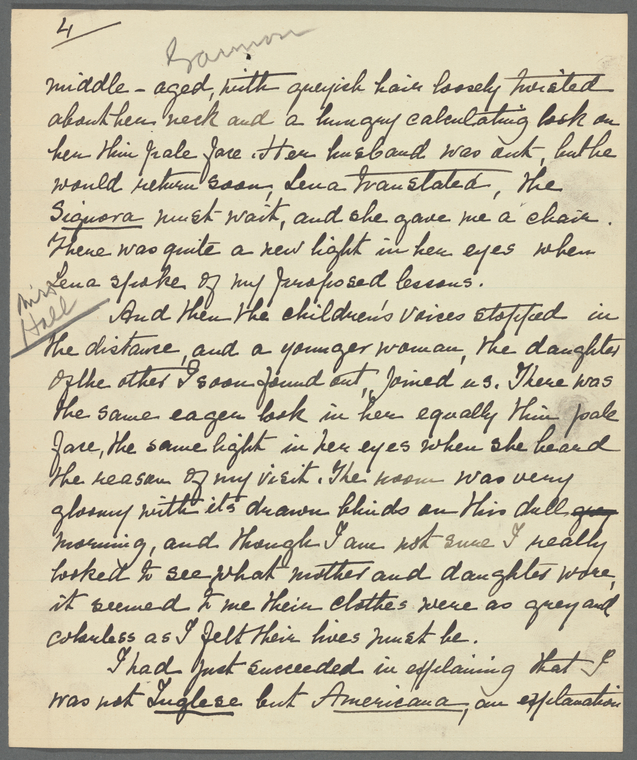 4
middle-aged, with greyish hair loosely twisted
about her neck and a hungry calculating look on
her thin pale face. Her husband was out, but he
would return soon, Lena translated, the
Signora must wait, and she gave me a chair.
There was quite a new light in her eyes when
Lena spoke of my proposed lessons.
Miss
Hall
And then the children's voices stopped in
the distance, and a younger woman, the daughter
of the other I soon found out, joined us. There was
the same eager look in her equally thin pale
face, the same light in her eyes when she heard
the reason of my visit. The room was very
gloomy with its drawn blinds on this dull grey
morning, and though I am not sure I really
looked to see what mother and daughter wore,
it seemed to me their clothes were as grey and
colorless as I felt their lives must be.
I had just succeeded in explaining that I
was not Inglese but Americana, an explanation